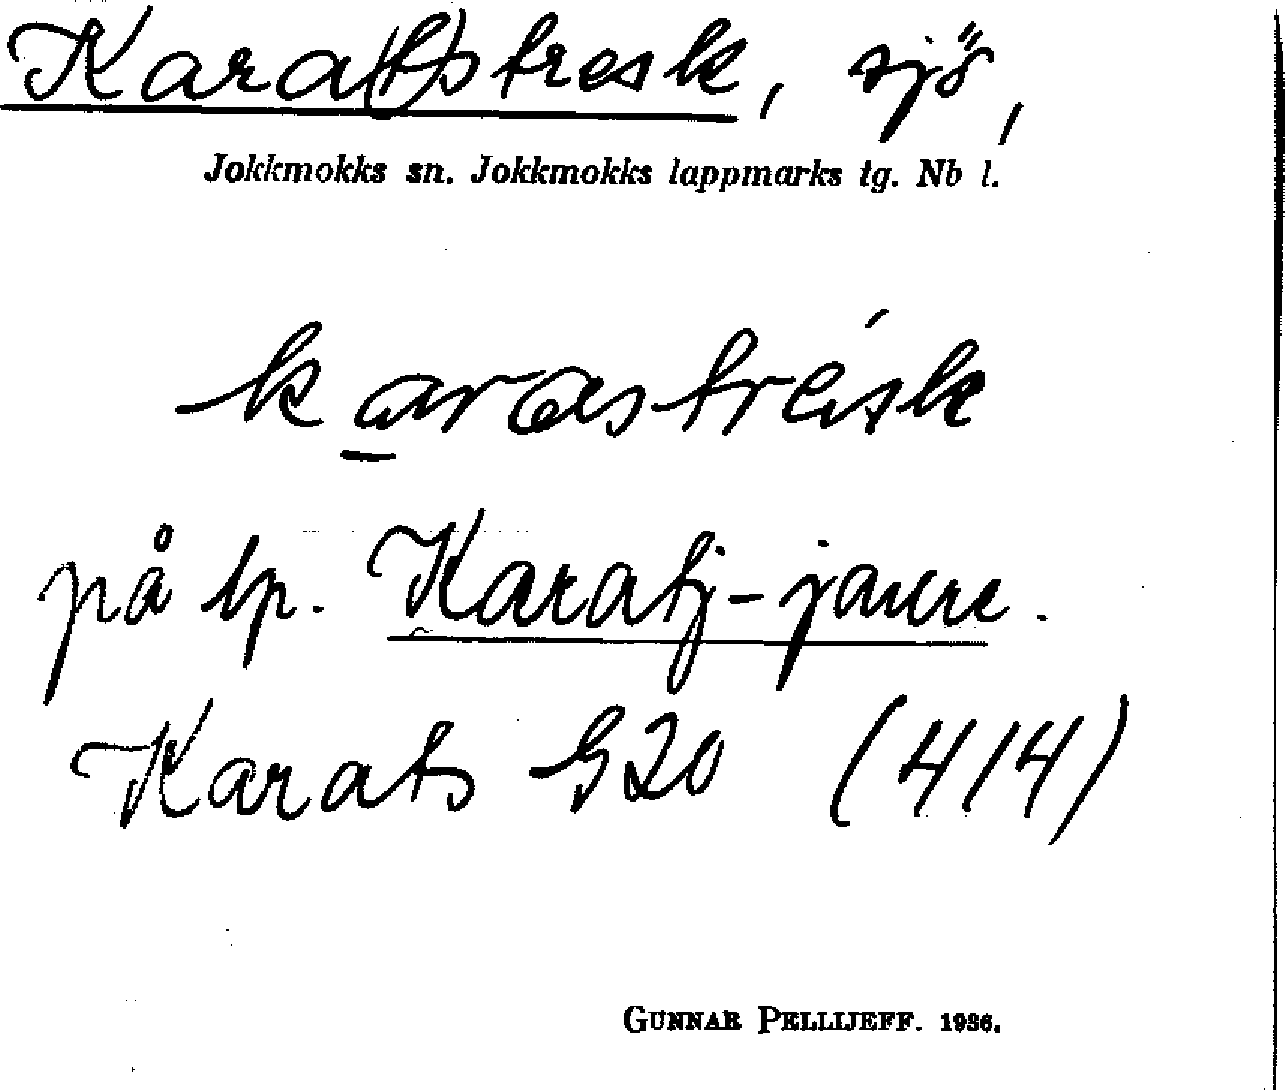 Kara(t)stresk, sjö,
Jokkmokks sn. Jokkmokks lappmarks tg. Nb l.
karastrésk
på lp. Karatj-jaure.
Karats G20 (414)
GUNNAR PELLIJEFF. 1936.